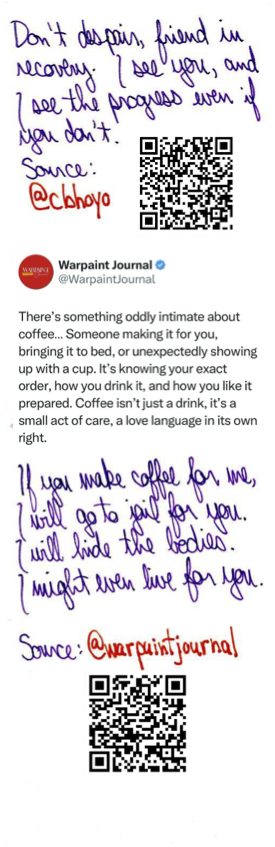 Don't despair, friend in
recovery. I see you, and
I see the progress even if
you don't.
Source:
@cbhoyo
WARPAINT
Warpaint Journal
@WarpaintJournal
There's something oddly intimate about
coffee... Someone making it for you,
bringing it to bed, or unexpectedly showing
up with a cup. It's knowing your exact
order, how you drink it, and how you like it
prepared. Coffee isn't just a drink, it's a
small act of care, a love language in its own
right.
If you make coffee for me,
I will go to jail for you.
I will hide the bodies.
I might even live for you.
Source: @warpaintjournal